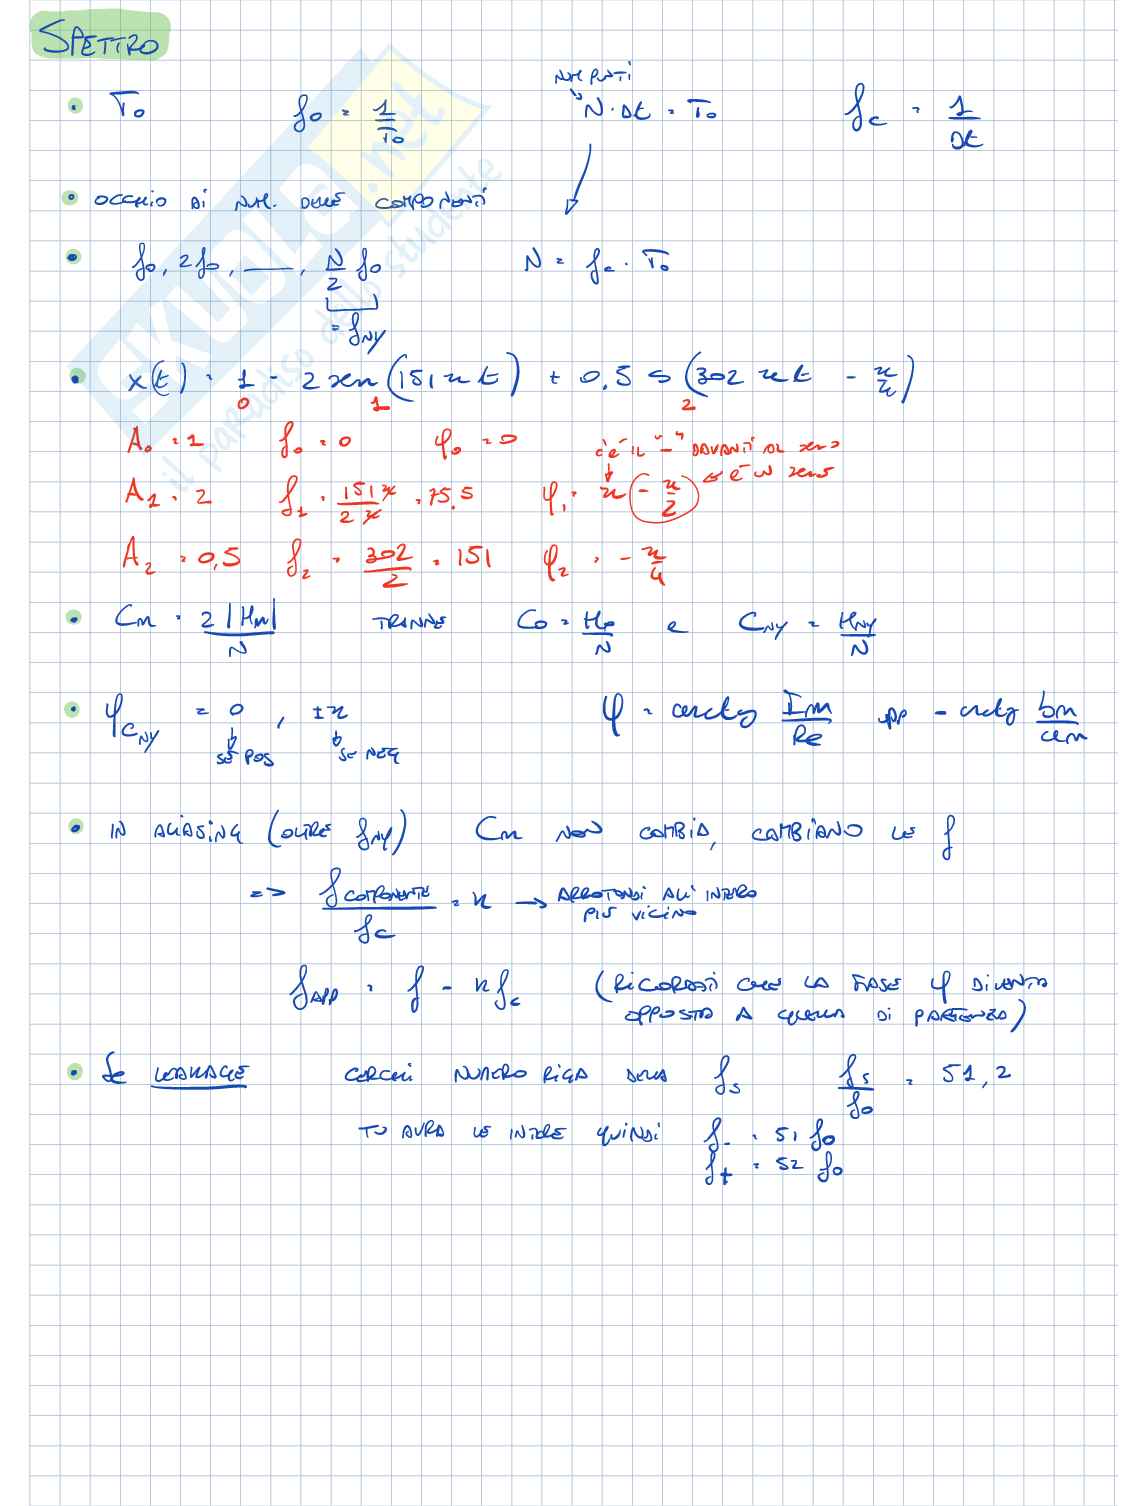 SPETTRO
NUM PUNTI
• T₀ f₀ = 1/T₀ N·Δt = T₀ f_c = 1/Δt
• OCCHIO AI NUM. DELLE COMPONENTI
• f₀, 2f₀, ——, N/2 f₀ N = f_c · T₀
= f_NY
• x(t) = 1 - 2 sen(151πt) + 0,5 s(302πt - π/4)
0 1 2
A₀ = 1 f₀ = 0 φ₀ = 0 c'è IL "-" DAVANTI AL seno
A₁ = 2 f₁ = 151π/2π = 75.5 φ₁ = π (-π/2) ← È UN seno
A₂ = 0,5 f₂ = 302/2 = 151 φ₂ = -π/4
• Cm = 2|Hm|/N TRANNE C₀ = H₀/N e C_NY = H_NY/N
• φ_C_NY = 0, ±π φ = arctg Im/Re opp - arctg bm/am
SE POS SE NEG
• IN ALIASING (OLTRE f_NY) Cm NON CAMBIA, CAMBIANO LE f
=> f COMPONENTE/f_c = n → ARROTONDI ALL'INTERO
PIÙ VICINO
f_APP = f - n f_c (RICORDATI CHE LA FASE φ DIVENTA
OPPOSTA A QUELLA DI PARTENZA)
• Se LEAKAGE CERCHI NUMERO RIGA DELLA f_s f_s/f₀ = 51,2
TU AVRAI LE INTERE QUINDI f₋ = 51 f₀
f₊ = 52 f₀
SKUOLA.net
il paradiso dello studente